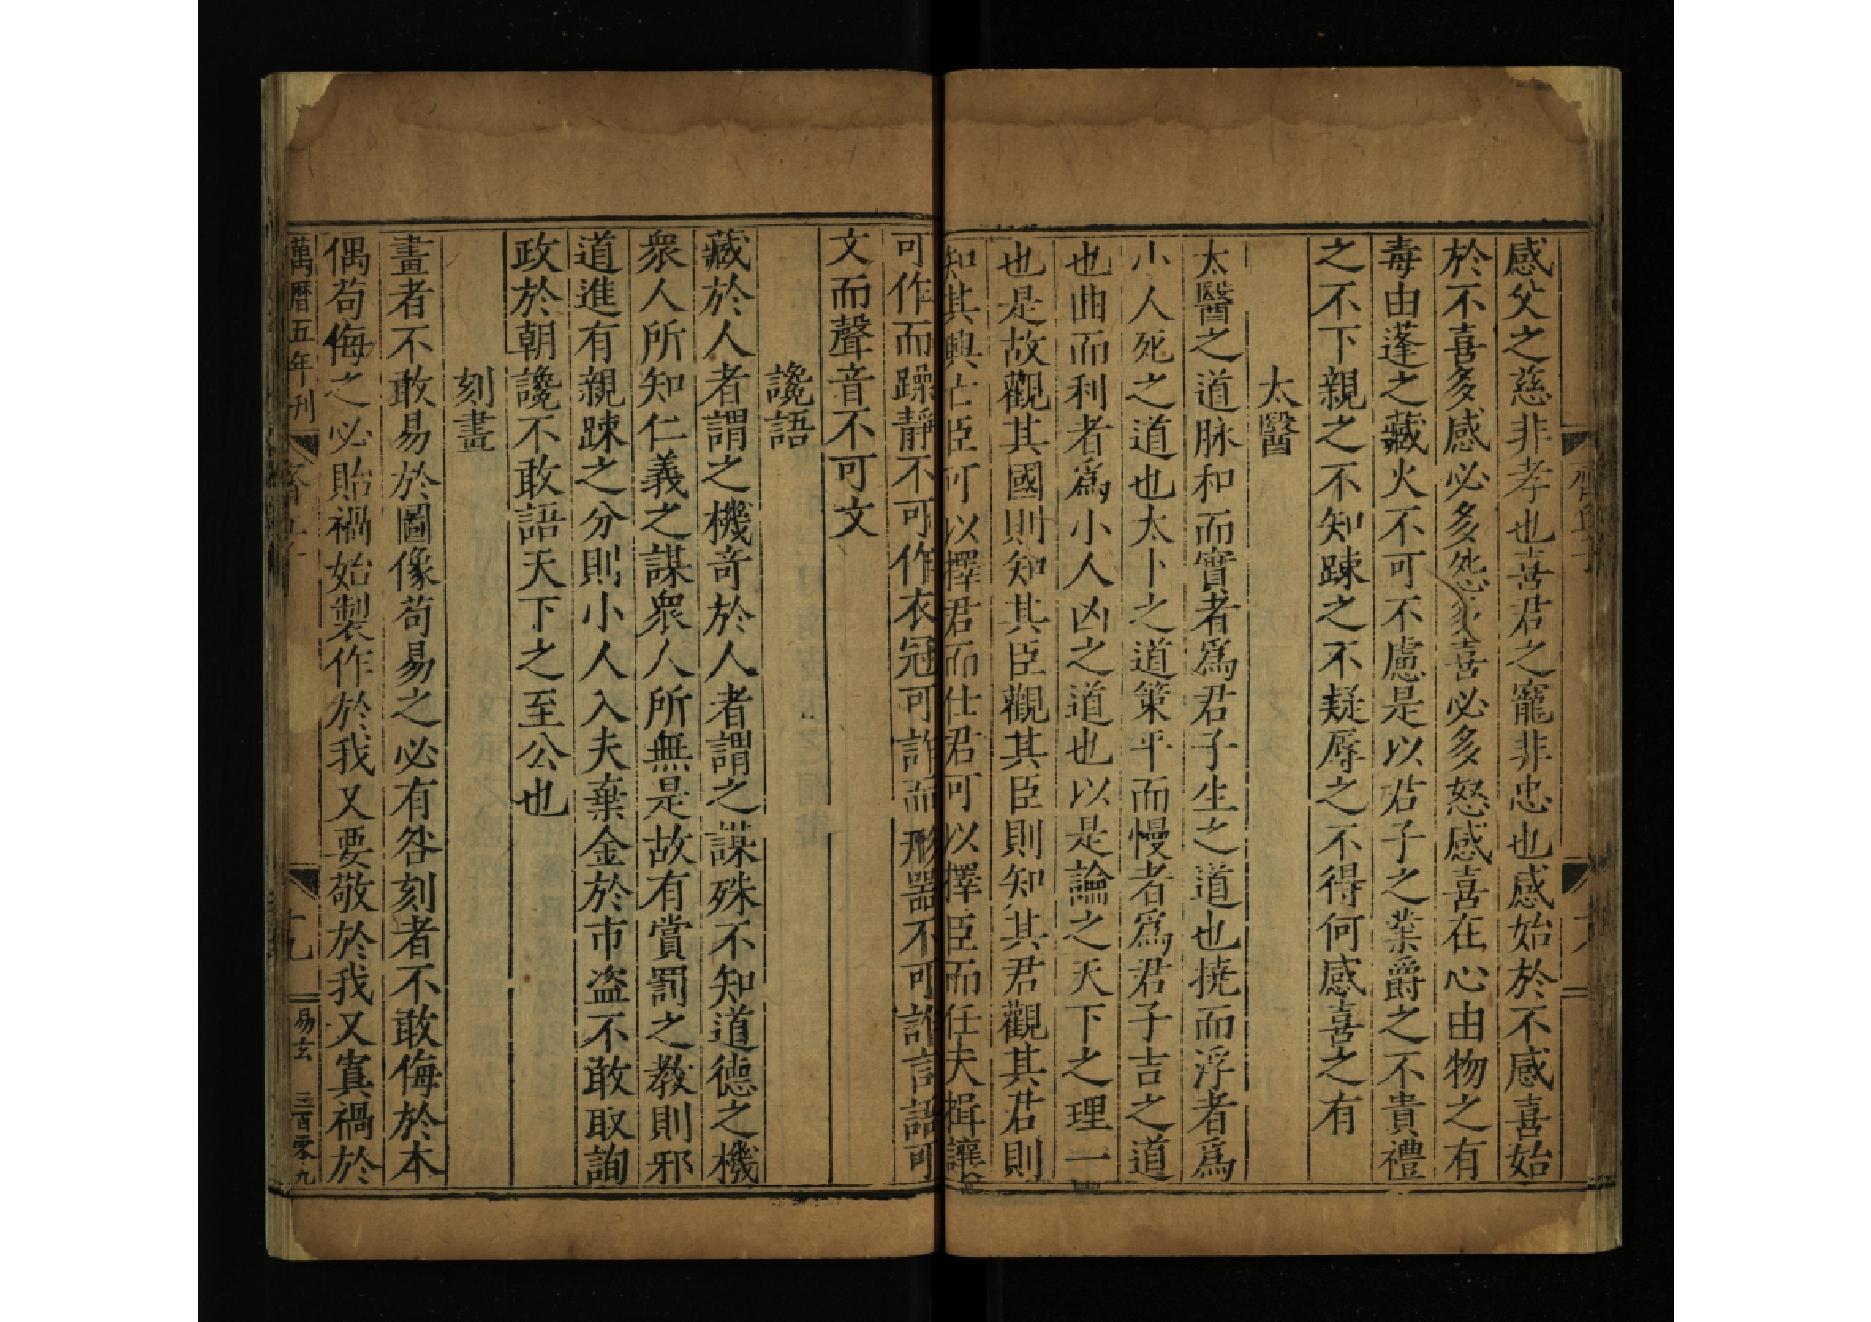 感父之慈非孝也喜君之寵非忠也感始於不感喜始
於不喜多感必多怨多喜必多怒感喜在心由物之有
毒由蓬之藏火不可不慮是以君子之業爵之不貴禮
之不下親之不知踈之不疑辱之不得何感喜之有
太醫
太醫之道脉和而實者爲君子生之道也撓而浮者爲
小人死之道也太卜之道策平而慢者爲君子吉之道
也曲而利者爲小人凶之道也以是論之天下之理一
也是故觀其國則知其臣觀其臣則知其君觀其君則
知其興亡臣可以擇君而仕君可以擇臣而任夫揖讓
可作而躁靜不可作衣冠可詐而形器不可詐言語可
文而聲音不可文
讒語
藏於人者謂之機奇於人者謂之謀殊不知道德之機
衆人所知仁義之謀衆人所無是故有賞罰之教則邪
道進有親踈之分則小人入夫棄金於市盗不敢取詢
政於朝讒不敢語天下之至公也
刻畫
畫者不敢易於圖像苟易之必有咎刻者不敢侮於本
偶苟侮之必貽禍始製作於我又要敬於我又寘禍於
萬曆五年刊
十九
易玄
三百零九